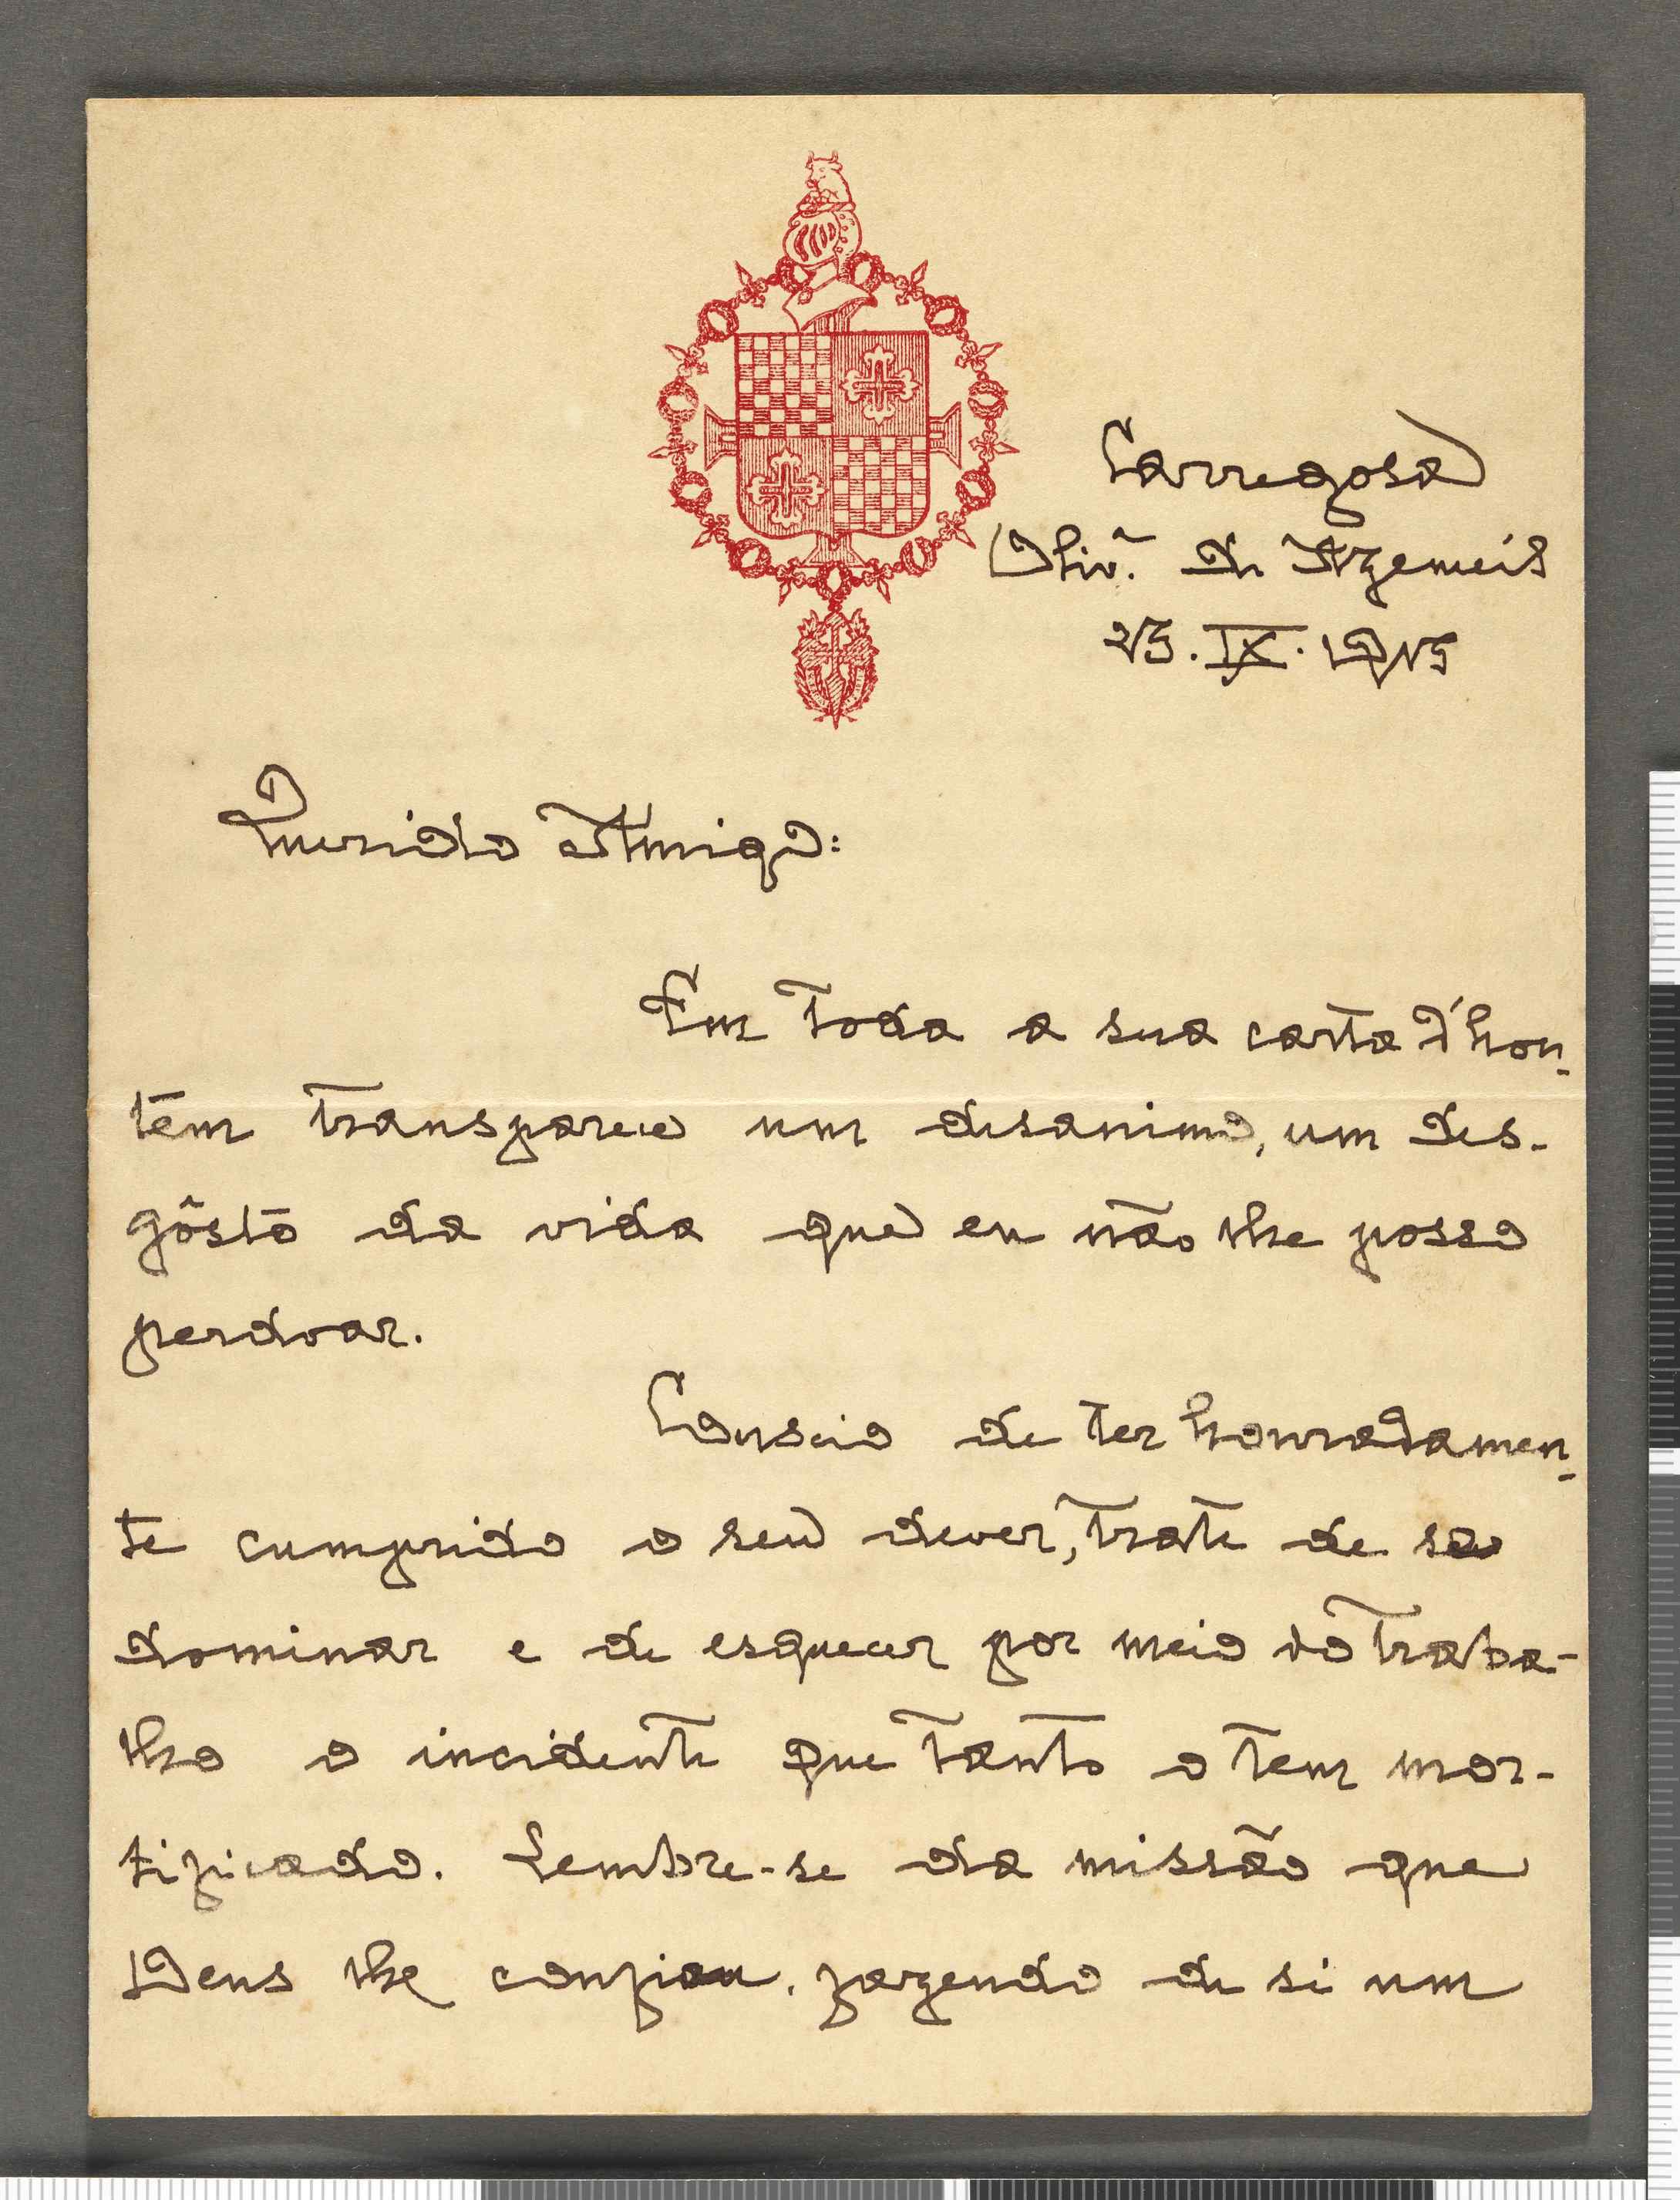 Carregosa
Oliv.ª de Azemeis
25.IX.1915
Querido Amigo:
Em toda a sua carta d'hon-
tem transparece um desanimo, um des-
gôsto da vida que eu não lhe posso
perdoar.
Conscio de ter honradamen-
te cumprido o seu dever, trate de se
dominar e de esquecer por meio do traba-
lho o incidente que tanto o tem mor-
tificado. Lembre-se da missão que
Deus lhe confiou, fazendo de si um